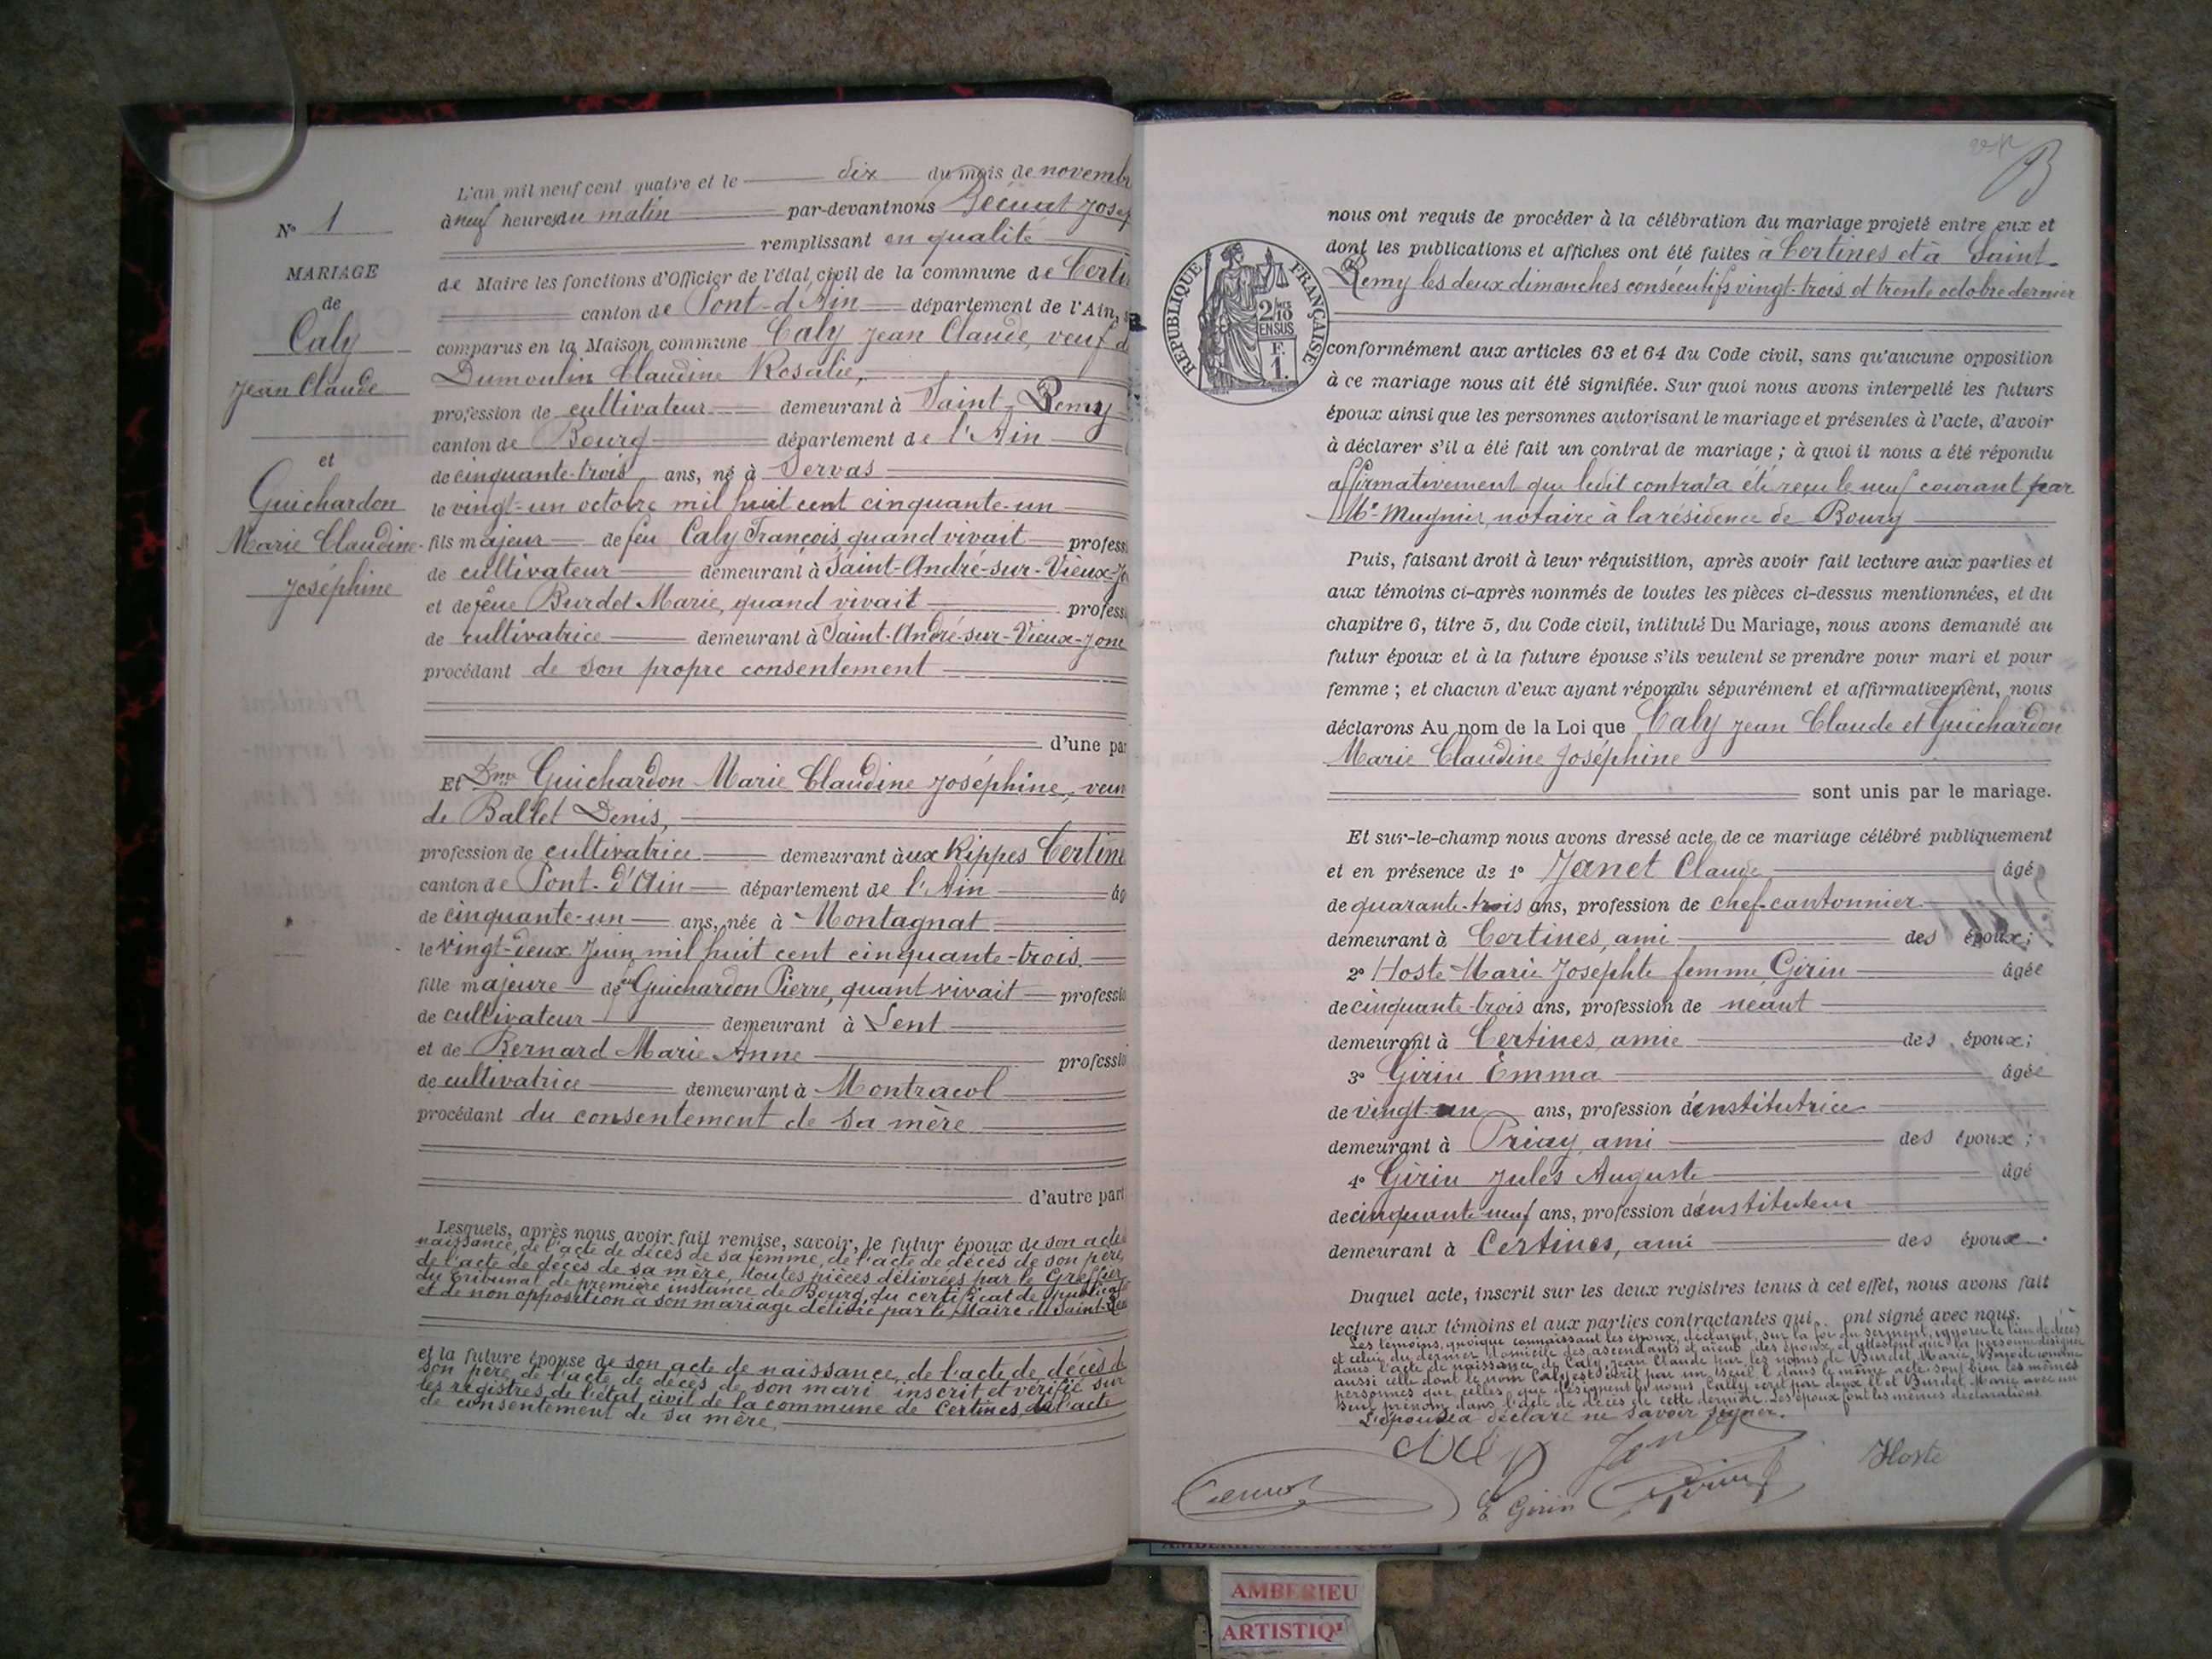 N° 1
MARIAGE
de
Caly
Jean Claude
et
Guichardon
Marie Claudine
Joséphine
L'an mil neuf cent quatre et le dix du mois de novembr
à neuf heures du matin par-devant nous Josep
remplissant en qualité
de Maire les fonctions d'Officier de l'état civil de la commune de Certi
canton de Pont-d'Ain département de l'Ain,
comparus en la Maison commune Caly Jean Claude, veuf d
Dumoulin Claudine Rosalie,
profession de cultivateur demeurant à Saint-Remy
canton de Bourg département de l'Ain
de cinquante-trois ans, né à Servas
le vingt-un octobre mil huit cent cinquante-un
fils majeur de feu Caly François quand vivait profess
de cultivateur demeurant à Saint-André-sur-Vieux-Jo
et de feue Burdet Marie, quand vivait profess
de cultivatrice demeurant à Saint-André-sur-Vieux-Jonc
procédant de son propre consentement
d'une par
Et Dme Guichardon Marie Claudine Joséphine, veuv
de Ballet Denis,
profession de cultivatrice demeurant aux Rippes Certine
canton de Pont-d'Ain département de l'Ain âg
de cinquante-un ans, née à Montagnat
le vingt-deux Juin mil huit cent cinquante-trois
fille majeure de feu Guichardon Pierre, quant vivait professio
de cultivateur demeurant à Lent
et de Bernard Marie Anne professio
de cultivatrice demeurant à Montracol
procédant du consentement de sa mère
d'autre part
Lesquels, après nous avoir fait remise, savoir, le futur époux de son acte
naissance, de l'acte de décès de sa femme, de l'acte de décès de son père,
de l'acte de décès de sa mère, toutes pièces délivrées par le Greffier
du Tribunal de première instance de Bourg, du certificat de publicat
et de non opposition à son mariage délivré par le Maire de Saint-Rem
et la future épouse de son acte de naissance, de l'acte de décès d
son père, de l'acte de décès de son mari inscrit et vérifié sur
les registres de l'état civil de la commune de Certines, de l'acte
de consentement de sa mère,
REPUBLIQUE FRANÇAISE
2/10
EN SUS
F.
1.
nous ont requis de procéder à la célébration du mariage projeté entre eux et
dont les publications et affiches ont été faites à Certines et à Saint-
Remy les deux dimanches consécutifs vingt-trois et trente octobre dernier
conformément aux articles 63 et 64 du Code civil, sans qu'aucune opposition
à ce mariage nous ait été signifiée. Sur quoi nous avons interpellé les futurs
époux ainsi que les personnes autorisant le mariage et présentes à l'acte, d'avoir
à déclarer s'il a été fait un contrat de mariage ; à quoi il nous a été répondu
affirmativement que ledit contrat a été reçu le neuf courant par
Me Mugnier, notaire à la résidence de Bourg
Puis, faisant droit à leur réquisition, après avoir fait lecture aux parties et
aux témoins ci-après nommés de toutes les pièces ci-dessus mentionnées, et du
chapitre 6, titre 5, du Code civil, intitulé Du Mariage, nous avons demandé au
futur époux et à la future épouse s'ils veulent se prendre pour mari et pour
femme ; et chacun d'eux ayant répondu séparément et affirmativement, nous
déclarons Au nom de la Loi que Caly Jean Claude et Guichardon
Marie Claudine Joséphine
sont unis par le mariage.
Et sur-le-champ nous avons dressé acte de ce mariage célébré publiquement
et en présence de 1° Janet Claude âgé
de quarante-trois ans, profession de chef-cantonnier
demeurant à Certines, ami des époux;
2° Hoste Marie Josephte femme Girin âgée
de cinquante-trois ans, profession de néant
demeurant à Certines, amie des époux;
3° Girin Emma âgée
de vingt-un ans, profession d'institutrice
demeurant à Priay, ami des époux;
4° Girin Jules Auguste âgé
de cinquante-neuf ans, profession d'instituteur
demeurant à Certines, ami des époux.
Duquel acte, inscrit sur les deux registres tenus à cet effet, nous avons fait
lecture aux témoins et aux parties contractantes qui ont signé avec nous.
Les témoins, quoique connaissant les époux, déclarent, sur la foi du serment, ignorer le lieu de décès
et celui du dernier domicile des ascendants et aïeux des époux et attestent que la personne désignée
dans l'acte de naissance de Caly Jean Claude par les noms de Burdet Marie
aussi celle dont le nom Caly est écrit par un seul l dans le même acte sont bien les mêmes
personnes que celles que désignent les noms Cally écrit par deux ll et Burdet Marie avec un
seul prénom dans l'acte de décès de cette dernière. Les époux font les mêmes déclarations.
L'épouse a déclaré ne savoir signer.
Hoste
E Girin
AMBERIEU
ARTISTIQ